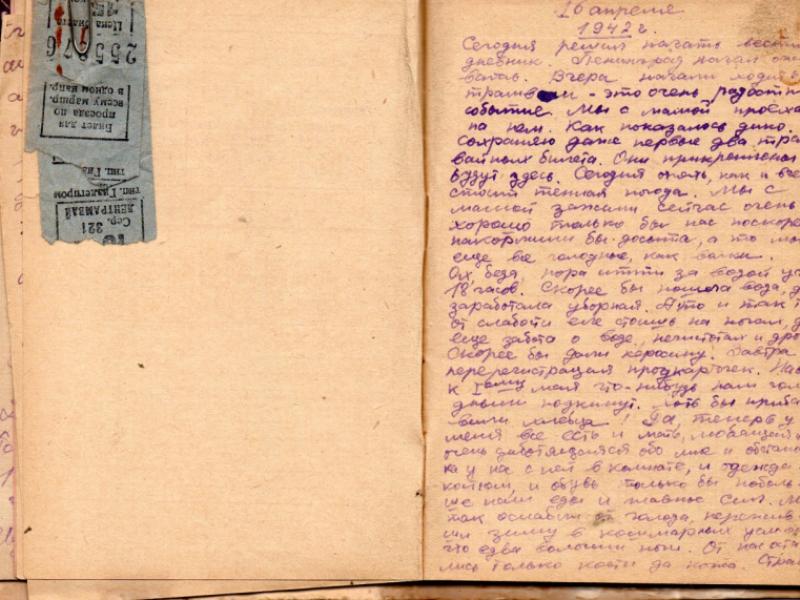 Цена билета
255876
Билет для
проезда по
всему маршр.
в одном напр.
тип. Гиз
тип. Гизлегпром
ЛЕНТРАМВАЙ
Сер. 321
16 апреля
1942 г.
Сегодня решил начать вести
дневник. Ленинград начал ожи
вать. Вчера начали ходить
трамваи – это очень радостн
событие. Мы с мамой проеха
на нем. Как показалось дико.
сохраняю даже первые два трам
вайных билета. Они прикреплены
будут здесь. Сегодня опять, как и вче
стоит теплая погода. Мы с
мамой зажили сейчас очень
хорошо только бы нас поскоре
накормили бы досыта, а то мы
еще все голодные, как волки.
Ох, беда, пора итти за водой уж
18 часов. Скорее бы пошла вода, да
заработала уборная. А то и так
от слабости еле стоишь на ногах, да
еще забота о воде, кипятки и дро
Скорее бы дали керосину. Завтра
перерегистрация продкарточек. На
к 1ому мая что-нибудь нам голо
дным подкинут. Хоть бы приба
вили хлебца! Да, теперь у
меня все есть и мать, любящая и
очень заботящаяся обо мне и обстанов
ка у нас с ней в комнате, и одежда
костюм, и обувь только бы поболь
ше нам еды и главное сил. М
так ослабли от голода, пережив
ши зиму в кошмарных услов
что едва волочим ноги. От нас оста
лись только кости да кожа. Стра